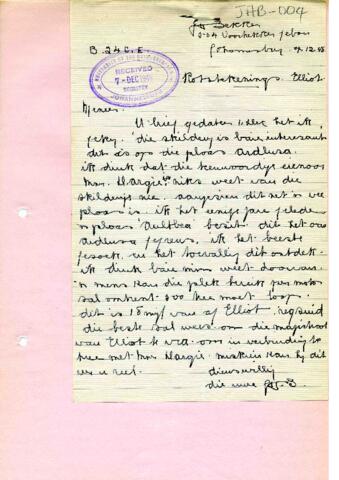 JAB-004
Jas Bekker
204 Voortrekker gebou
Johannesburg 4.12.
B. 24 C.E.
UNIVERSITY OF THE WITWATERSRAND
RECEIVED
7 - DEC 1955
REGISTRY
JOHANNESBURG
Rotstekenings. Elliot
Meneer.
U brief gedateer het ek
gekry. die skildery is baie interessant
dit is op die plaas Ardlusa.
ek dink dat die teenwoordige eienaar
Mnr. Hargie niks weet van die
skilderijs nie. aangesien dit net 'n vee
plaas is. ek het eenige jare gelede
'n plaas Aultbea besit. dit het aan
Ardlusa gegrens, ek het beeste
gesoek, en het toevallig dit ontdek.
ek dink baie min weet daarvan.
'n mens kan die plek bereik per motor
sal omtrent 300 tree moet loop.
dit is 18 myl van af Elliot. regsuid
die beste sal wees om die magistraat
van Elliot te vra om in verbinding te
tree met Mnr Hargie. miskien kan hy dit
vir u reel.
dienswillig
die uwe